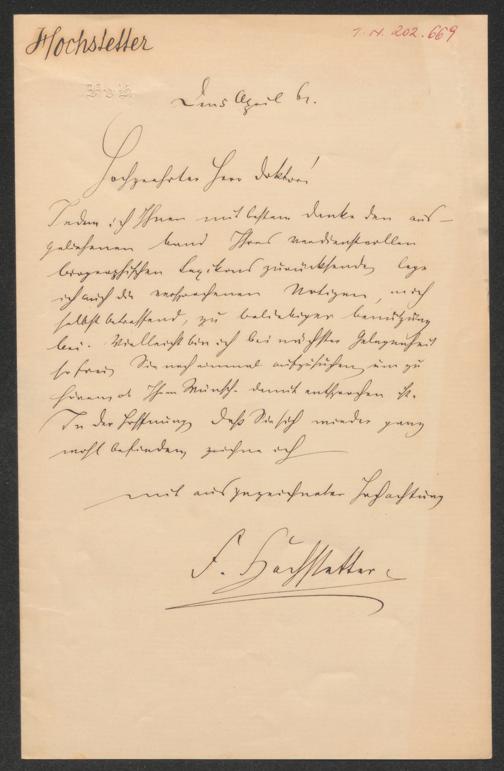 Hochstetter
I. N. 202.669
April 61.
Hochgeehrter Herr Doktor!
Indem ich Ihnen mit bestem Danke den aus-
geliehenen Band Ihres verdienstvollen
biographischen Lexikons zurücksende, lege
ich auch die versprochenen Notizen, mich
selbst betreffend, zu beliebiger Benützung
bei. Vielleicht bin ich bei nächster Gelegenheit
so frei, Sie noch einmal aufzusuchen, um zu
hören, ob Ihrem Wunsch damit entsprochen ist.
In der Hoffnung, daß Sie sich wieder ganz
wohl befinden, zeichne ich
mit ausgezeichneter Hochachtung
F. Hochstetter